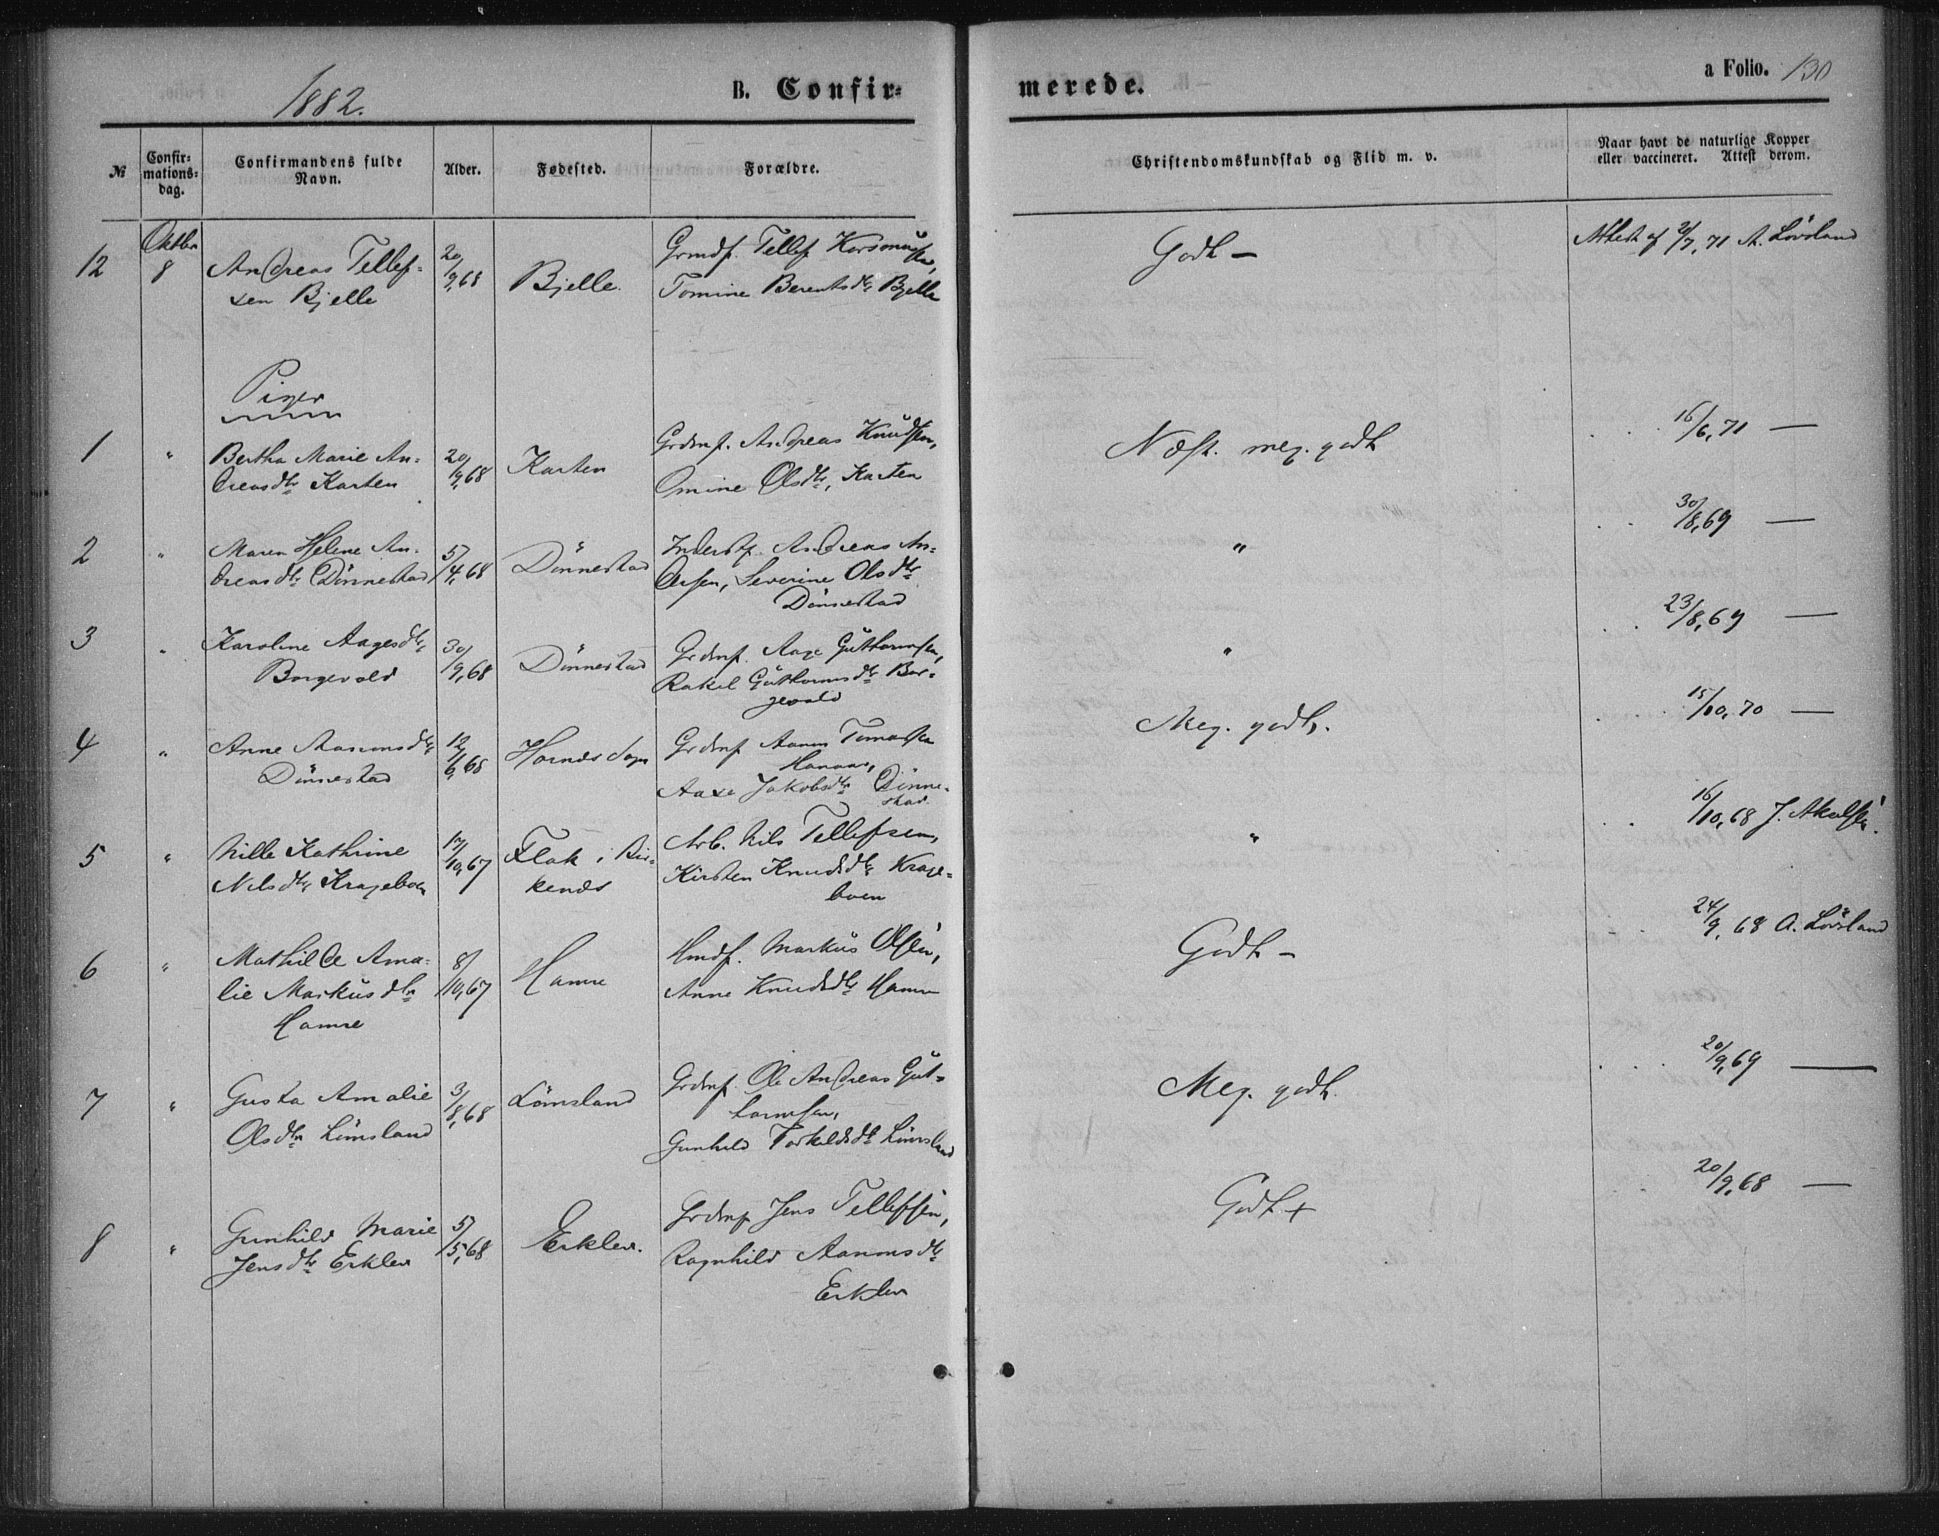 1882.
B. Confir=
merede.
a Folio. 130
№
Confir=
mations=
dag.
Confirmandens fulde
Navn.
Alder.
Fødested.
Forældre.
Christendomskundskab og Flid m. v.
Naar havt de naturlige Kopper
eller vaccineret. Attest derom.
12
Oktbr
8
Andreas Tellef=
sen Bjelle
20/9,68
Bjelle.
Tellef
Tomine Berentsdtr Bjelle
Godt –
Attest af 2/7, 71 A. Lövsland
Piger
1
"
Bertha Marie An=
dreasdtr Karten
20/9,68
Karten
Grdmf. Andreas Knudsen,
Omine Olsdtr, Karten
Næst. meg. godt
. . . 16/6, 71 —
2
"
Maren Helene An=
dreasdtr Dönnestad
5/4, 68
Dönnestad
Inderst. Andreas An=
dersen, Severine Olsdtr
Dönnestad
"
. . 30/8, 69 —
3
"
Karoline Aagesdtr
Borgevold
30/9,68
Dönnestad
Grdmf. Aage Guthormsen,
Rakel Guthormsdtr Bor=
gevold
"
. . 23/8, 69 —
4
"
Anne Aanonsdtr
Dönnestad
12/6,68
Hornes Sogn
Grdmf Aanon Tomassen
Aase Jakobsdtr Dönne=
stad
Meg. godt.
. . . 15/10, 70 —
5
"
Nille Kathrine
Nilsdtr Krageboen
17/10,67
Flak i Bir=
kenes
Arb. Nils Tellefsen,
Kirsten Knudsdtr Krage=
boen
"
. . 16/10, 68 J. Akselsen.
6
"
Mathilde Ama=
lie Markusdtr
Hamre
8/10,67
Hamre
Hmdf. Markus Olsen,
Anne Knudsdtr Hamre
Godt –
. . 24/9, 68 A. Lövsland
7
"
Gusta Amalie
Olsdtr Lömsland
3/8,68
Lömsland
Grdmf. Ole Andreas Gut=
tormsen,
Gunhild Torkildsdtr Lömsland
Meg. godt.
. . . 20/9, 69 —
8
"
Gunhild Marie
Jensdtr Erklev
5/5,68
Erklev.
Grdmf Jens Tellefsen,
Ragnhild Aanonsdtr
Erklev
Godt +
. . 20/9, 68 —